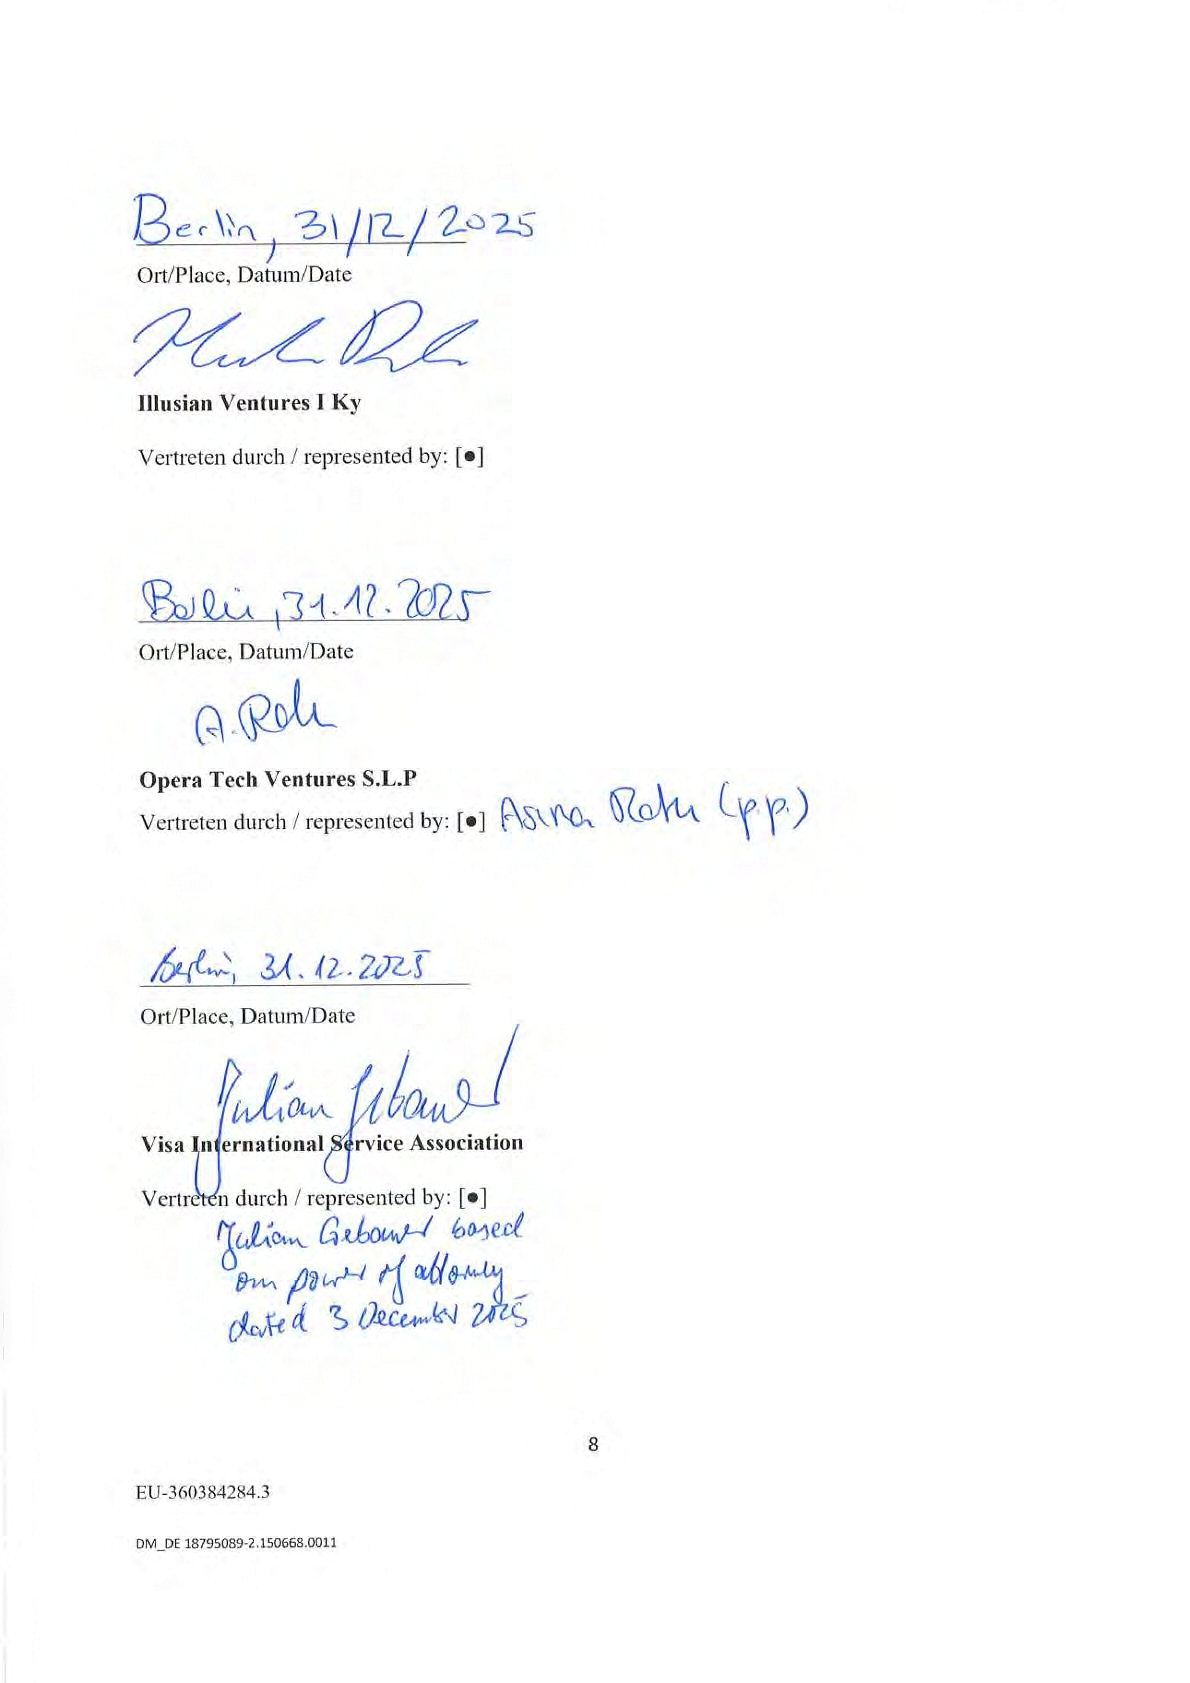 Berlin, 31/12/2025
Ort/Place, Datum/Date
Illusian Ventures I Ky
Vertreten durch / represented by: [●]
Berlin, 31.12.2025
Ort/Place, Datum/Date
A. Roth
Opera Tech Ventures S.L.P
Vertreten durch / represented by: [●] Asina Roth (p.p.)
Berlin, 31.12.2025
Ort/Place, Datum/Date
Julian Gebauer
Visa International Service Association
Vertreten durch / represented by: [●]
Julian Gebauer based
on power of attorney
dated 3 December 2025
8
EU-360384284.3
DM_DE 18795089-2.150668.0011